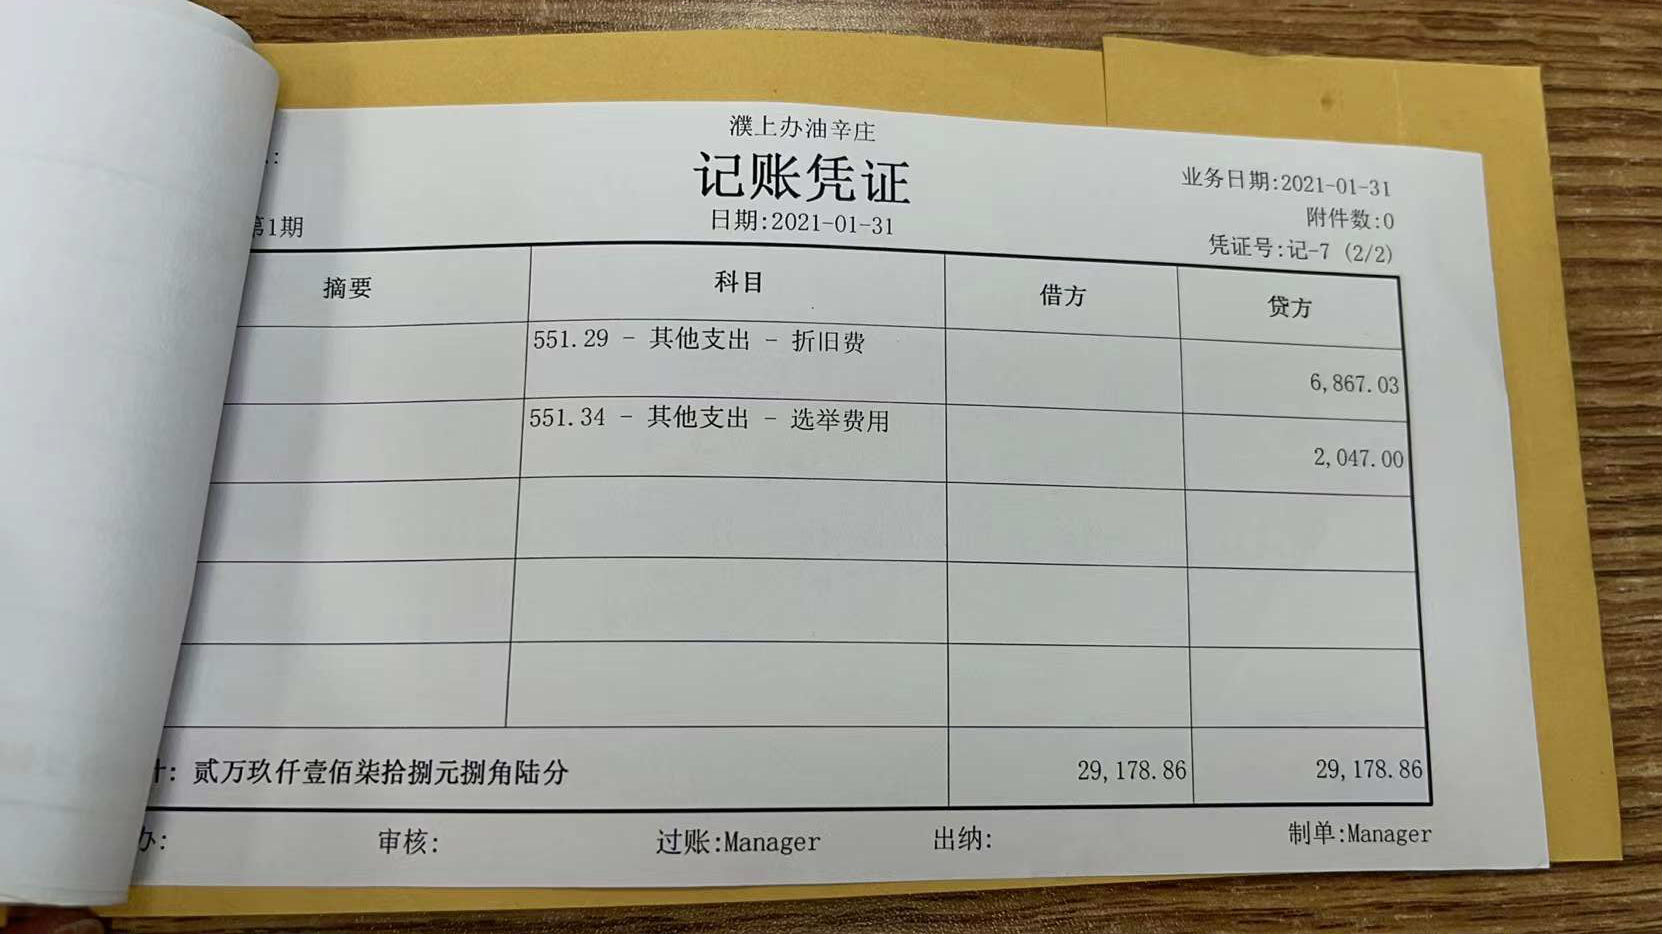 濮上办油辛庄
记账凭证
业务日期:2021-01-31
附件数:0
第1期
日期:2021-01-31
凭证号:记-7 (2/2)
摘要 科目 借方 贷方
551.29 - 其他支出 - 折旧费 6,867.03
551.34 - 其他支出 - 选举费用 2,047.00
计: 贰万玖仟壹佰柒拾捌元捌角陆分 29,178.86 29,178.86
办: 审核: 过账:Manager 出纳: 制单:Manager